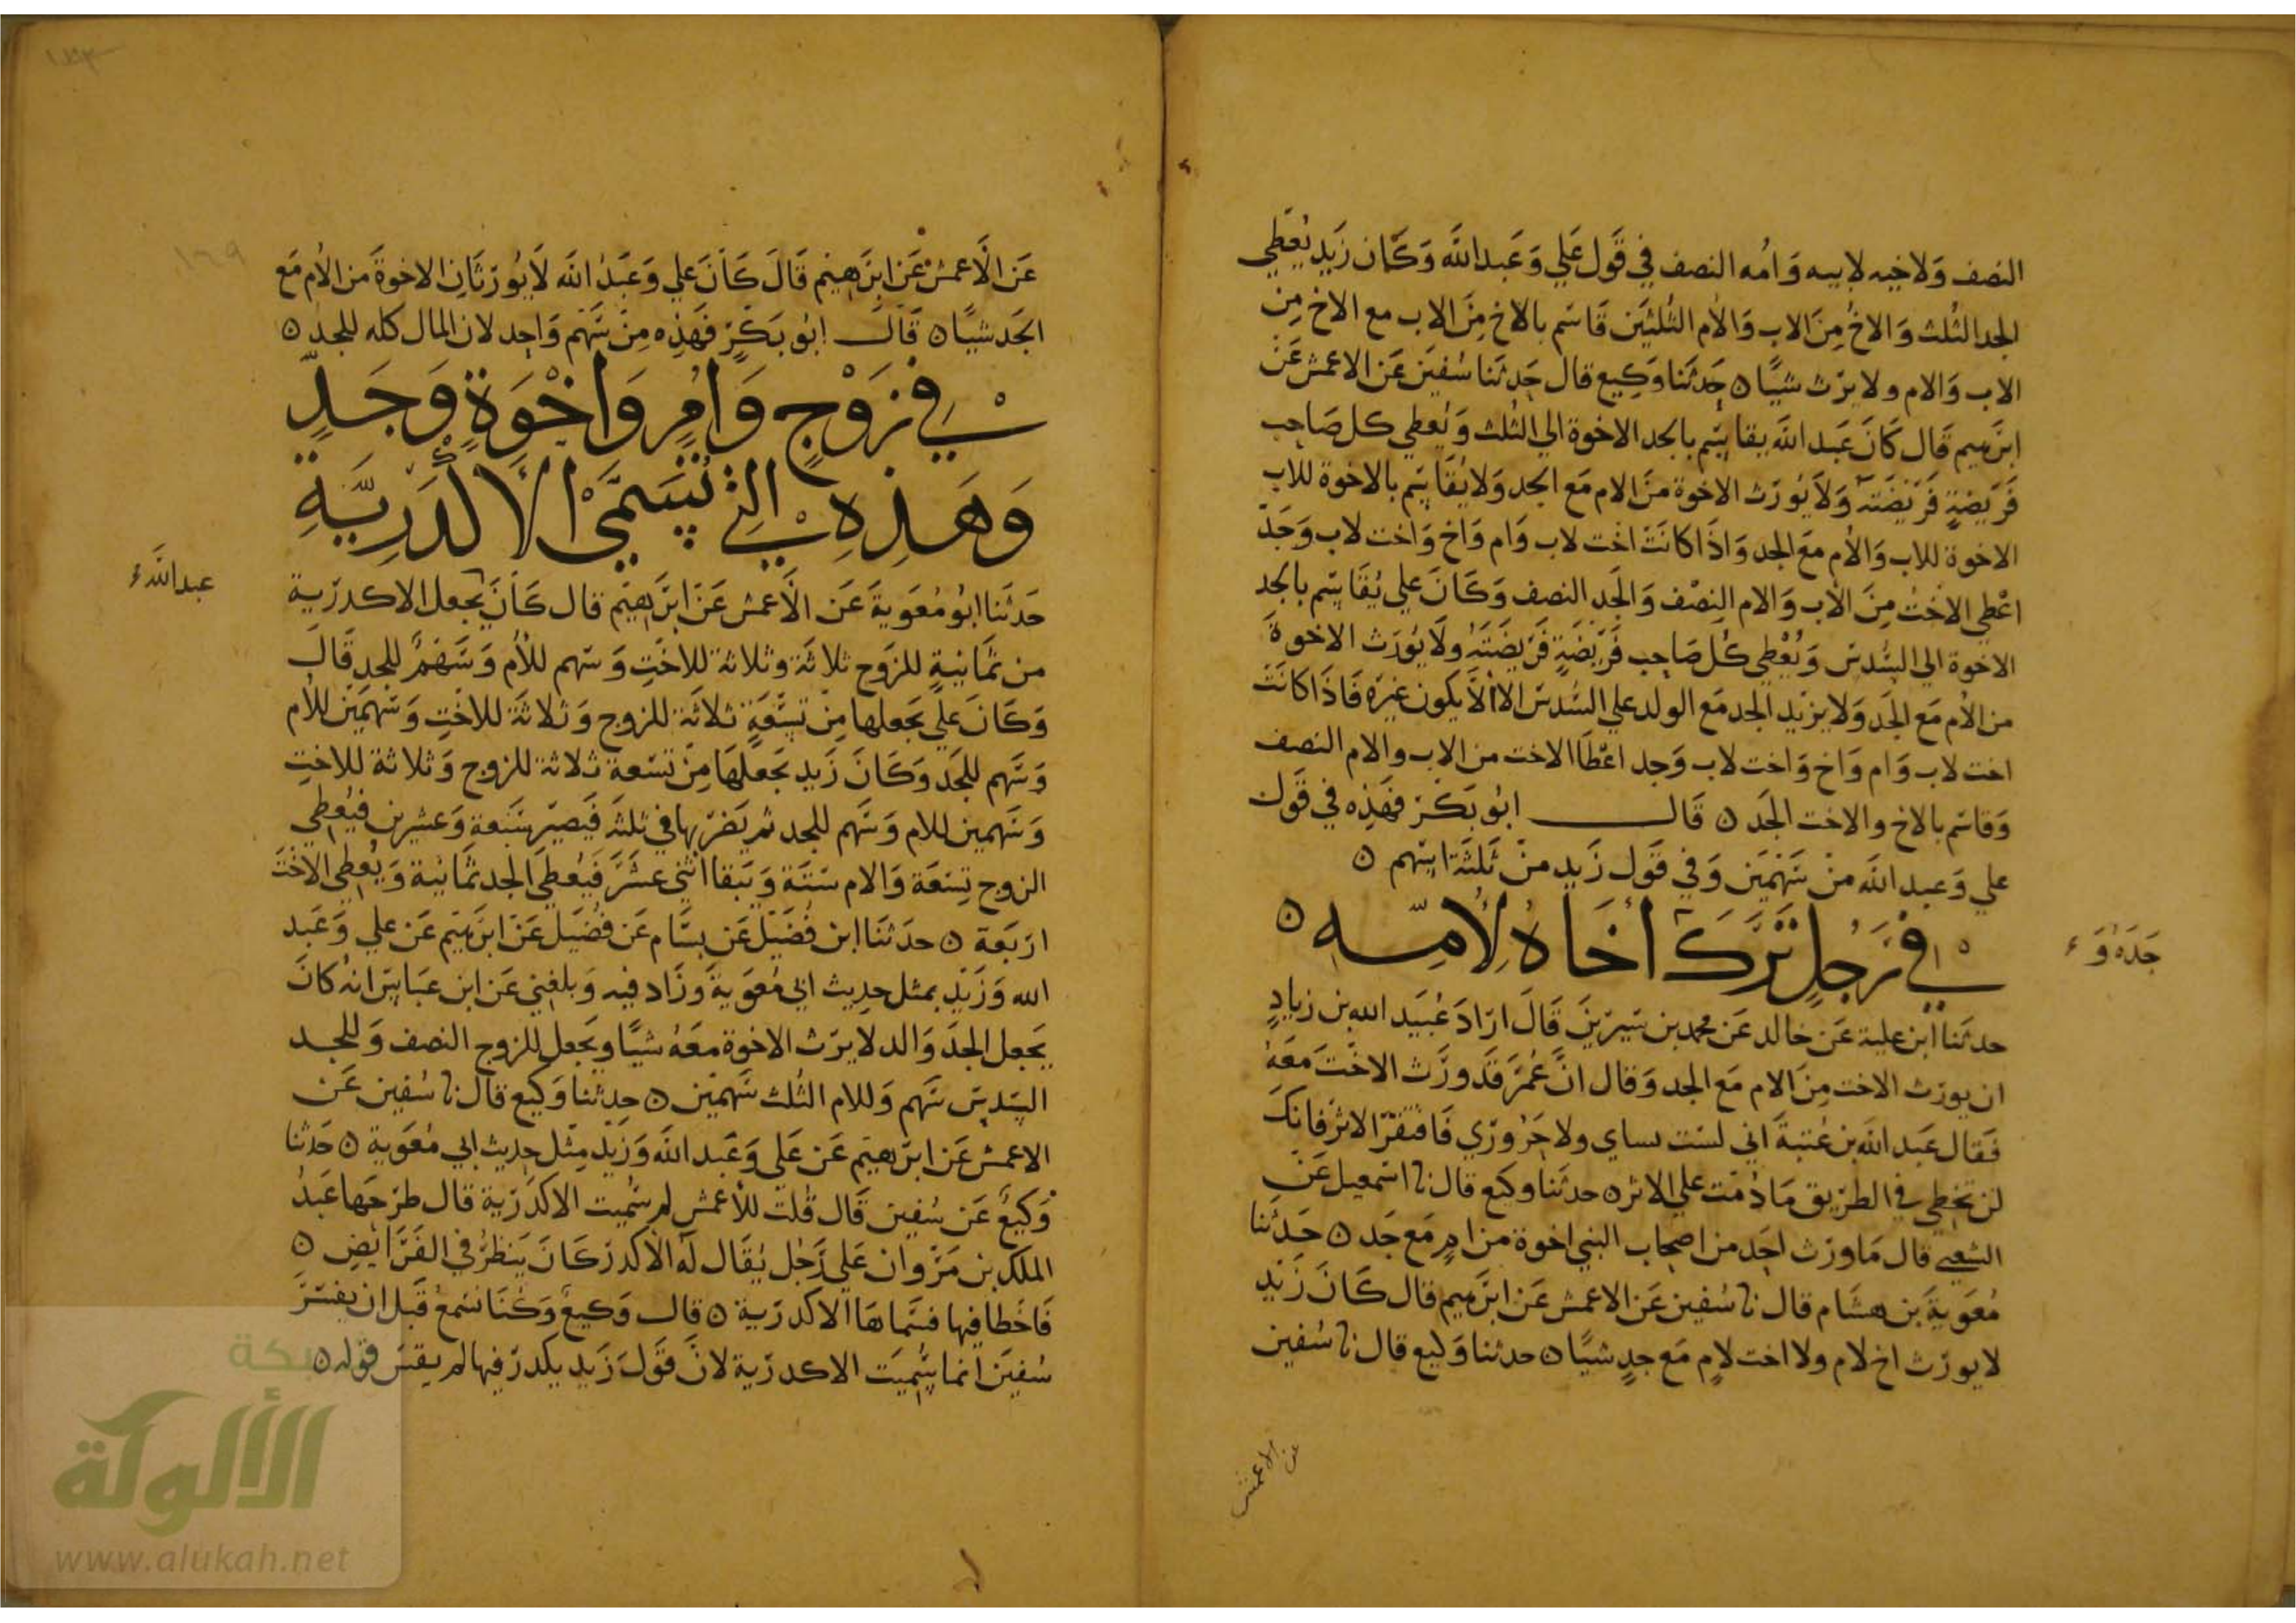 النصف وَلاخيه لابيه وَامُه النصف في قَول عَلي وَعَبد الله وَكَان زَيد يُعطِي
الجد الثُلث وَالاخُ مِنَ الاب وَالأم الثُلثَين قَاسَم بالاخ مِنَ الاب مع الاخ مِن
الاب وَالام ولا يرَث شيًا ه حَدثنَا وَكِيع قال حَدثنَا سُفين عَن الاعمش عَن
ابرَهيم قَال كَانَ عَبد الله يقاسِم بالجد الاخوة الي الثُلث وَيُعطي كل صَاحِب
فَريضةٍ فَريضَته وَلاَ يُورَث الاخوة منَ الام مَع الجد وَلا يُقَاسِم بالاخوة للاب
الاخوة للاب وَالأم مَع الجد وَاذَا كانَت اخت لاب وَام وَاخ وَاخت لاب وَجَدّ
اعْطي الاختُ مِنَ الأب وَالام النِصْف وَالجَد النصف وَكَانَ علي يُقَاسِم بالجد
الاخوة الي السُدس وَيُعْطِي كُل صَاحِب فَرِيضَةٍ فَريضَتَهُ ولَا يُورَث الاخوة
من الأم مَع الجَد وَلا يزيد الجد مَع الولد علي السُدس الا ألاَّ يكون غيره فَاذَا كانَت
اخت لاب وَام وَاخ وَاخت لاب وَجد اعْطَا الاخت من الاب والام النصف
وَقاسَم بالاخ والاخت الجَد ه قَال ابُو بَكْر فهَذِه في قَول
علي وَعبد الله منْ سَهْمَين وَفي قَول زَيد منْ ثَلثَة اسهم ه
في رَجُلٍ تَرَكَ أخَاهُ لِأُمِّهِ ه
جَدَهُ وَ
حدثَنا ابن علية عَن خالد عَن محمد بن سيرين قَالَ ارَادَ عُبَيد الله بن زيادٍ
ان يورث الاخت مِنَ الام مَع الجد وَقال انَّ عُمرَ قَد وَرَّث الاختَ مَعَهُ
فَقال عَبد الله بن عُتبَةَ اني لست بساي ولا حَرُورَي فَاقتَفر الاثر فَانك
لن تخطِي في الطريق مَا دُمْت علي الاثر ه حدثنَا وكيع قال نا اسمعيل عَن
الشعبي قال مَا وَرث احَد من اصحاب النبي اخوة من امٍ مَع جَد ه حَدثنا
مُعَويةَ بن هشام قال نا سُفين عَن الاعمش عَن ابرَهيم قال كَانَ زَيد
لا يورَث اخ لام ولا اخت لامٍ مَع جدٍ شيًا ه حدثنا وَكيع قال نا سُفين
عن الاعمش
١٦٩
عَن الاَعمش عَن ابرَهيم قَالَ كَانَ علي وَعَبدُ الله لَا يُورّثَانِ الاخوةَ من الأم مَع
الجَد شيًا ه قَال ابُو بَكْرٍ فَهَذِه مِنْ سَهْم وَاحِد لان المال كله للجد ه
في زَوْجٍ وَامٍ وَاخْوَةٍ وَجَدٍ
وَهَذِهِ التِي تُسَمَّي الأكْدَرِيَّةِ
عبد الله
حَدثنا ابُو مُعَويةَ عَن الاَعمش عَن ابرَهيم قال كَانَ يجعل الاكدرية
من ثمَانيةٍ للزَوج ثلاثَة وثلاثة للأختِ وَسَهم للأم وَسَهْمٌ للجدِ قَالَ
وَكَانَ علي يَجعلها مِن تِسْعَةٍ ثلاثَة للزوج وَثلاثَة للاختِ وَسَهمَين للأم
وَسَهم للجَد وَكَانَ زَيد يَجعَلهَا مِن تسعة ثلاثة للزوج وَثلاثة للاختِ
وَسَهمين للام وَسَهم للجد ثم يَضربها في ثلثَة فَيصير سَبعة وَعشرين فيُعطِي
الزوج تِسعَة وَالام ستَة وَيَبقا اثني عشَرَ فَيُعطَي الجد ثمَانية وَيُعطِي الاختَ
اربَعة ه حدَثنَا ابن فُضَيل عَن بسَّام عَن فضَيل عَن ابرَهيم عَن علي وَعَبد
الله وَزَيدٍ بمثل حدِيث ابي مُعَوية وَزَاد فيه وَبلغني عَن ابن عبَاس انهُ كانَ
يَجعل الجدَ وَالد لا يرَث الاخوة معَهُ شيًا ويَجعل للزوج النصف وَللجد
السُدس سَهم وَللام الثلث سَهمَين ه حدثنَا وَكيع قال نا سُفين عَن
الاعمش عَن ابرَهيم عَن عَلي وَعَبد الله وَزَيد مِثْل حديث ابي مُعَوية ه حَدثنا
وَكيعٌ عَن سُفين قَال قلت للأعمش لم سُميت الاكدَرية قال طرَحهَا عَبدُ
الملك بن مَروان عَلي رَجُل يُقَال لَه الأكدر كَانَ يَنظرُ في الفَرَايضِ ه
فَاخطا فيها فسَماهَا الاكدَرية ه قال وَكيعٌ وَكُنَا نسمَعُ قَبل ان يفسر
سُفينَ انما سُمِيَت الاكدرية لانَ قَولَ زَيد يكدر فيها لم يقس قوله ه
شبكة
الألوكة
www.alukah.net